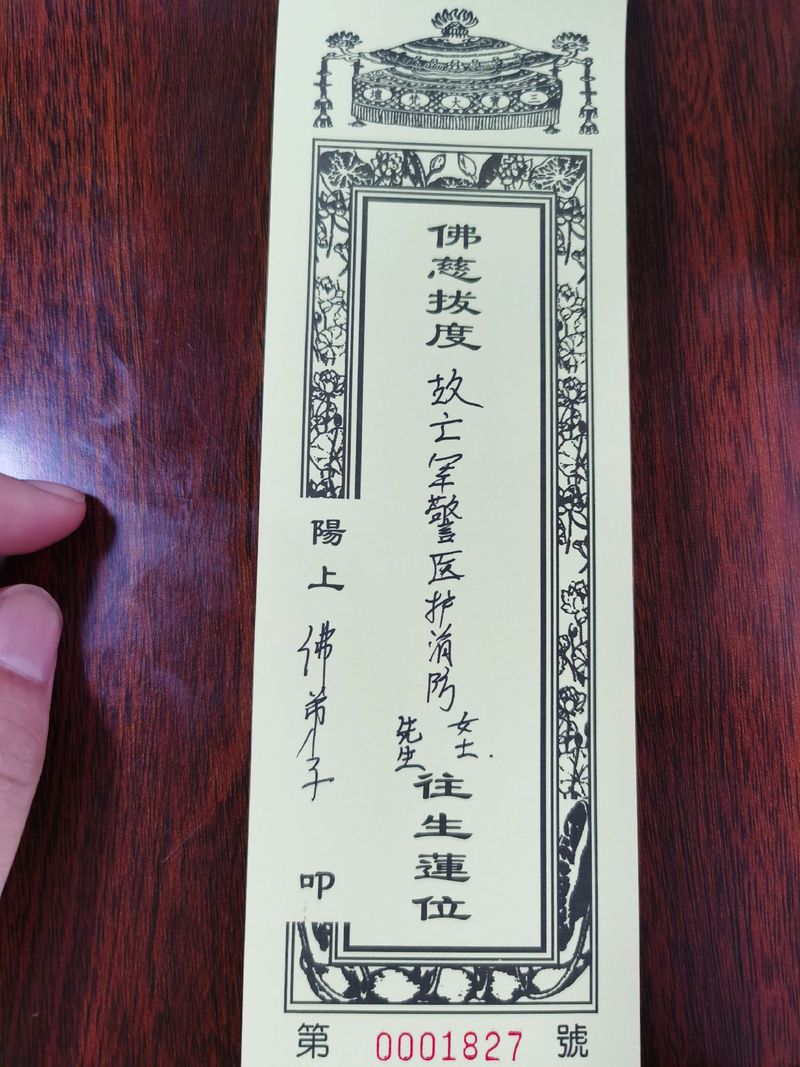 三寶大梵壇
佛慈拔度故亡军警医护消防先生女士往生蓮位
陽上佛弟子叩
第0001827號